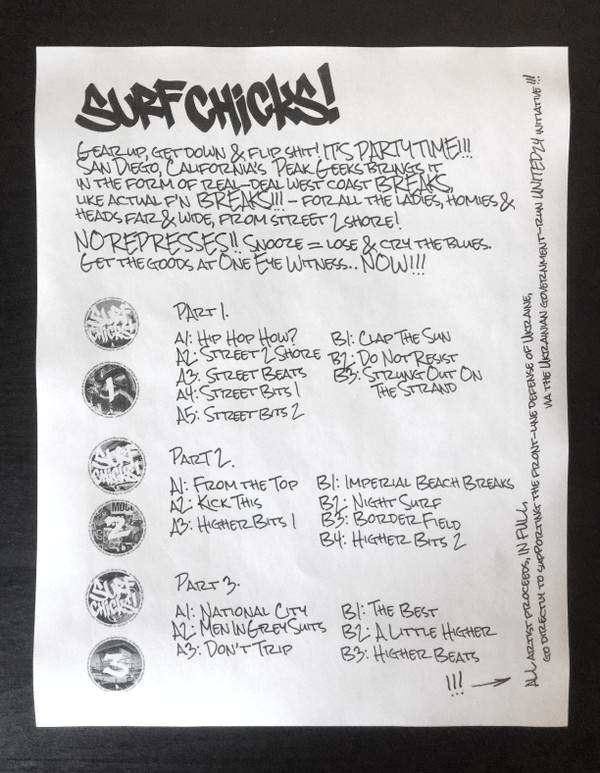 SURF CHICKS!
GEAR UP, GET DOWN & FLIP SHIT! IT'S PARTY TIME!!!
SAN DIEGO, CALIFORNIA'S PEAK GEEKS BRINGS IT
IN THE FORM OF REAL-DEAL WEST COAST BREAKS,
LIKE ACTUAL F'N BREAKS!!! – FOR ALL THE LADIES, HOMIES &
HEADS FAR & WIDE, FROM STREET 2 SHORE!
NO REPRESSES!! SNOOZE = LOSE & CRY THE BLUES.
GET THE GOODS AT ONE EYE WITNESS.. NOW!!!
SURF CHICKS!
1
PART 1.
A1: HIP HOP HOW?
A2: STREET 2 SHORE
A3: STREET BEATS
A4: STREET BITS 1
A5: STREET BITS 2
B1: CLAP THE SUN
B2: DO NOT RESIST
B3: STRUNG OUT ON
THE STRAND
SURF CHICKS!
2
PART 2.
A1: FROM THE TOP
A2: KICK THIS
A3: HIGHER BITS 1
B1: IMPERIAL BEACH BREAKS
B2: NIGHT SURF
B3: BORDER FIELD
B4: HIGHER BITS 2
SURF CHICKS!
3
PART 3.
A1: NATIONAL CITY
A2: MEN IN GREY SUITS
A3: DON'T TRIP
B1: THE BEST
B2: A LITTLE HIGHER
B3: HIGHER BEATS
!!! →
ALL ARTIST PROCEEDS, IN FULL,
GO DIRECTLY TO SUPPORTING THE FRONT-LINE DEFENSE OF UKRAINE,
VIA THE UKRAINIAN GOVERNMENT-RUN UNITED24 INITIATIVE!!!